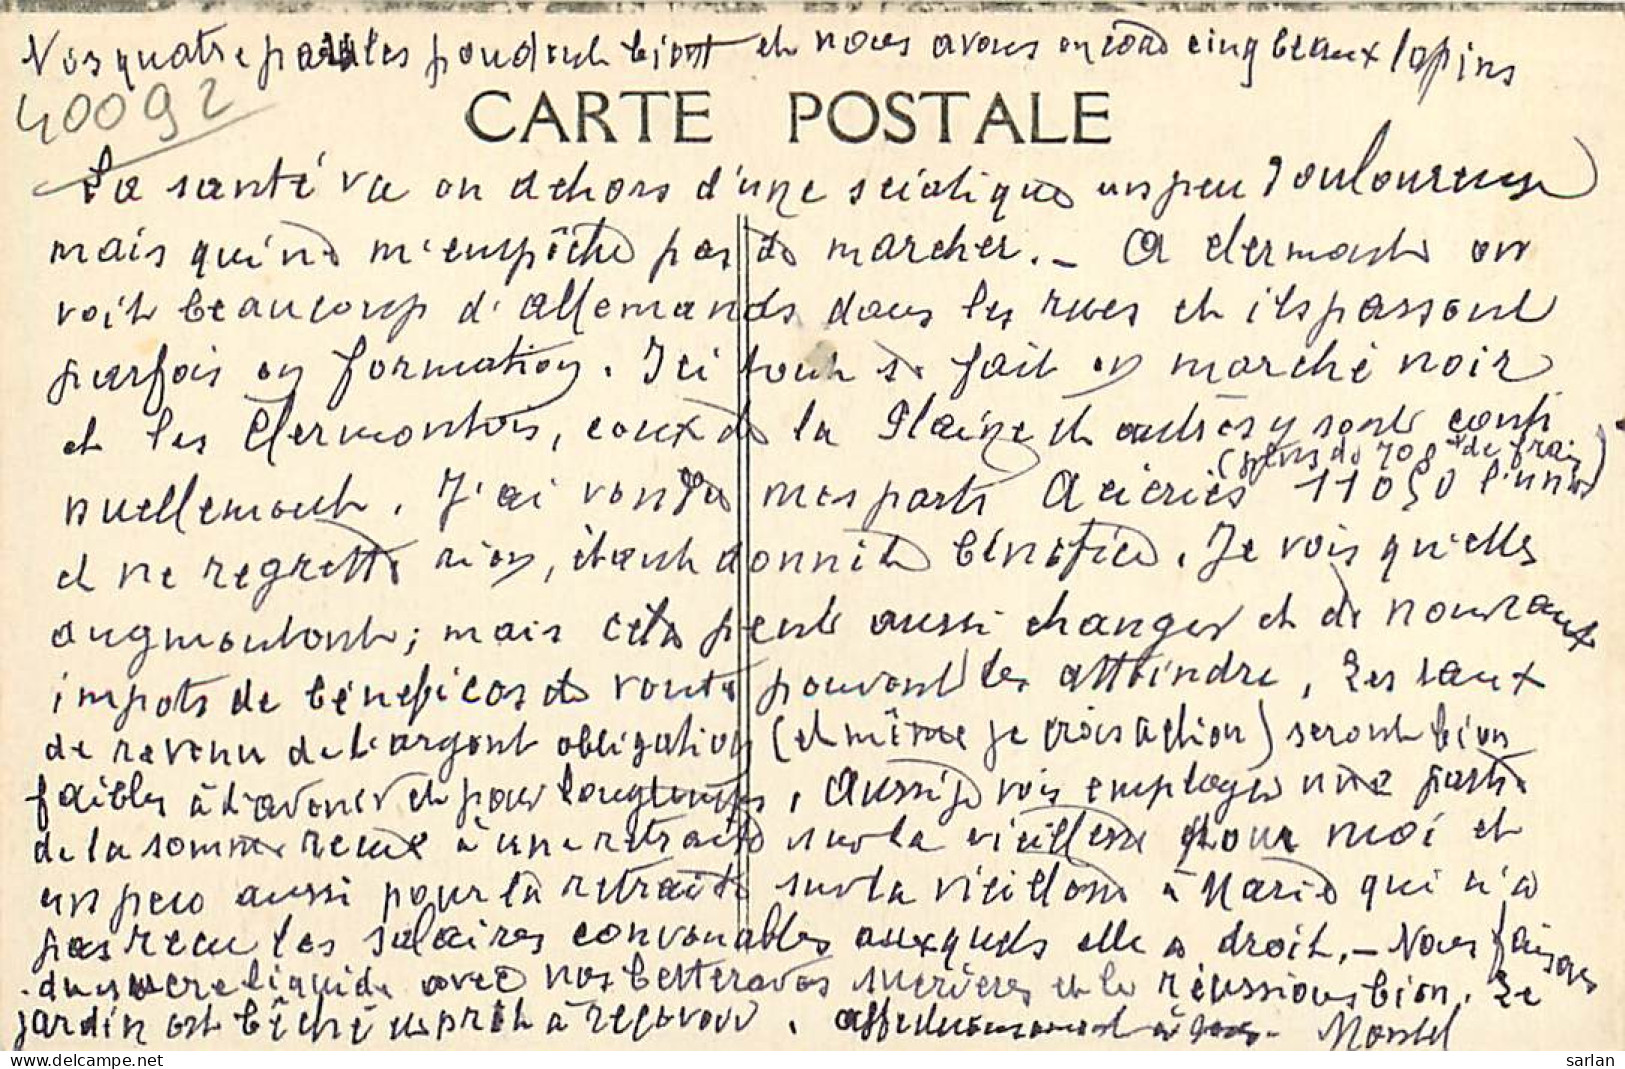 Nos quatre poules pondent bient et nous avons encore cinq beaux lapins
40092
CARTE POSTALE
La santé va en dehors d'une sciatique un peu douloureuse
mais qui ne m'empêche pas de marcher. - A Clermont on
voit beaucoup d'allemands dans les rues et ils passent
parfois en formation. Ici tout se fait en marché noir
et les Clermontois, ceux de la Plaine et autres y sont conti
nuellement. J'ai vendu mes parts Aciéries 11050 l'une
(plus de 70 de frais)
et ne regrette rien, étant donné le bénéfice. Je vois qu'elles
augmentent; mais cela peut aussi changer et de nouveaux
impots de bénéfices de vente pouvent les atteindre. Les taux
de revenu de l'argent obligation (et même je crois action) seront bien
faibles à l'avenir et pour longtemps. Aussi je vais employer une partie
de la somme reçue à une retraite sur la vieillesse pour moi et
un peu aussi pour la retraite sur la vieillesse à Marie qui n'a
pas reçu les salaires convenables auxquels elle a droit. - Nous faisons
du sucre liquide avec nos betteraves sucrières et le réussissons bien. Le
jardin est bêché et prêt à recevoir. affectueusement à